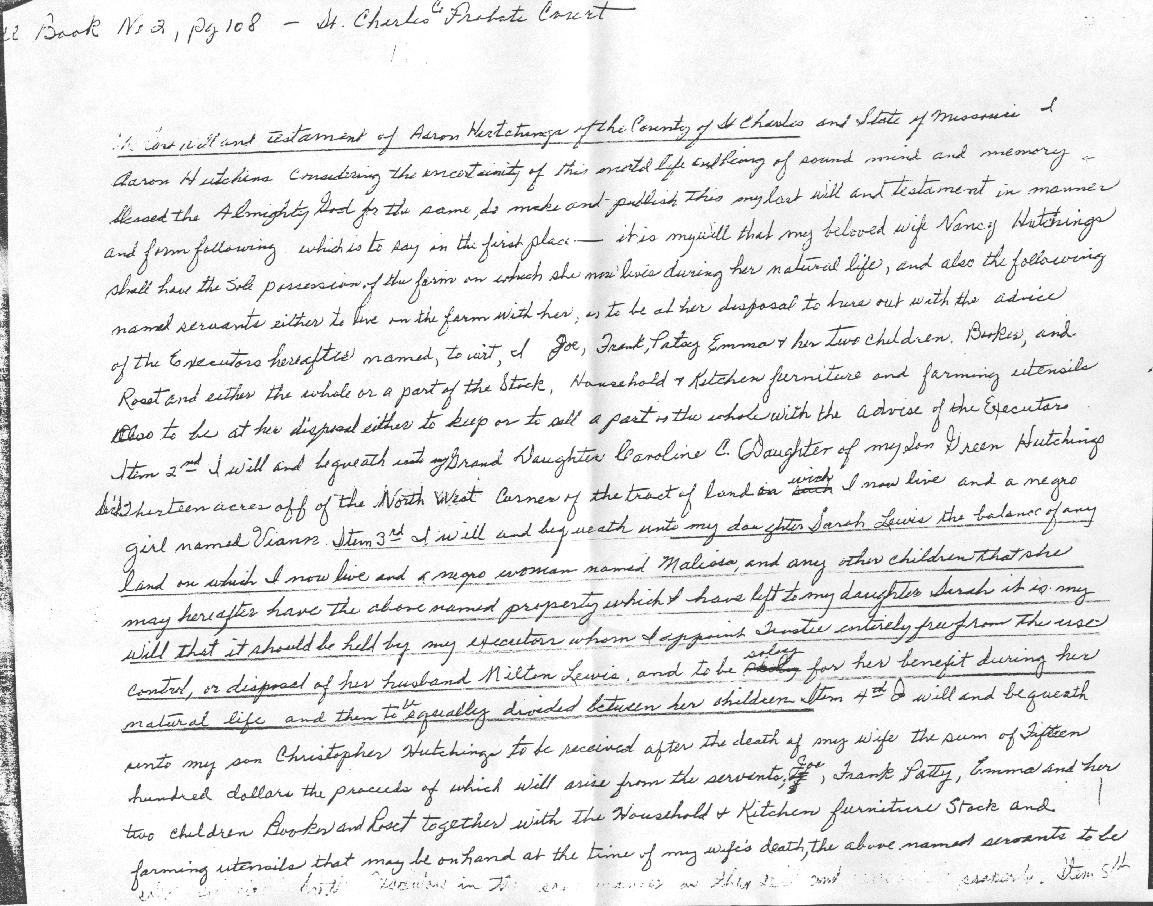 Book No 2, pg 108 - St. Charles Co Probate Court
Last will and testament of Aaron Hutchings of the County of St Charles and State of Missouri I
Aaron Hutchins considering the uncertainity of this world life and being of sound mind and memory
blessed the Almighty God for the same, do make and publish this my last will and testament in manner
and form following which is to say in the first place — it is my will that my beloved wife Nancy Hutchings
shall have the sole possession of the farm on which she now lives during her natural life, and also the following
named servants either to live on the farm with her, or to be at her disposal to hire out with the advice
of the Executors hereafter named, to wit, I Joe, Frank, Patsy Emma & her two children. Booker, and
Roset and either the whole or a part of the Stock, Household & Kitchen furniture and farming utensils
Also to be at her disposal either to keep or to sell a part or the whole with the advise of the Executors
Item 2nd I will and bequeath unto my Grand Daughter Caroline C. Daughter of my Son Green Hutchings
Dec'd Thirteen acres off of the North West Corner of the tract of land on wich I now live and a negro
girl named Viann. Item 3rd I will and bequeath unto my daughter Sarah Lewis the balance of any
land on which I now live and a negro woman named Malissa, and any other children that she
may hereafter have the above named property which I have left to my daughter Sarah it is my
will that it should be held by my executors whom I appoint Trustee entirely free from the use
control, or disposal of her husband Milton Lewis, and to be soley for her benefit during her
natural life and then to be equally divided between her children Item 4th I will and bequeath
unto my son Christopher Hutchings to be received after the death of my wife the sum of Fifteen
hundred dollars the proceeds of which will arise from the servants, Joe, Frank Patty, Emma and her
two children Booker and Roset together with the Household & Kitchen furniture Stock and
farming utensils that may be on hand at the time of my wife's death, the above named servants to be
in the manner and Item 5th